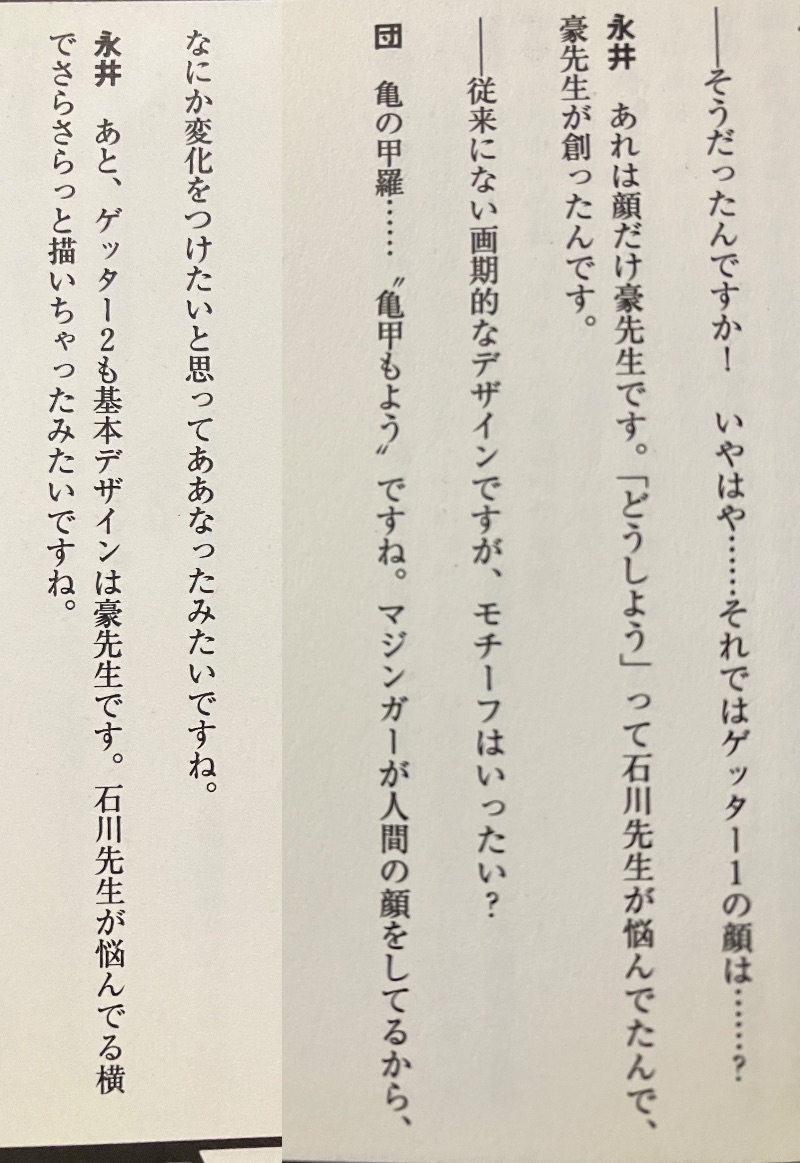 ――そうだったんですか！　いやはや……それではゲッター1の顔は……？
永井　あれは顔だけ豪先生です。「どうしよう」って石川先生が悩んでたんで、
豪先生が創ったんです。
――従来にない画期的なデザインですが、モチーフはいったい？
団　亀の甲羅……〝亀甲もよう〟ですね。マジンガーが人間の顔をしてるから、
なにか変化をつけたいと思ってああなったみたいですね。
永井　あと、ゲッター2も基本デザインは豪先生です。石川先生が悩んでる横
でさらさらっと描いちゃったみたいですね。